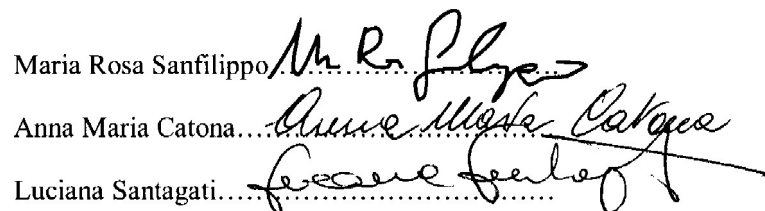 Maria Rosa Sanfilippo M. R. Sanfilippo
Anna Maria Catona.... Anna Maria Catona
Luciana Santagati..... Luciana Santag